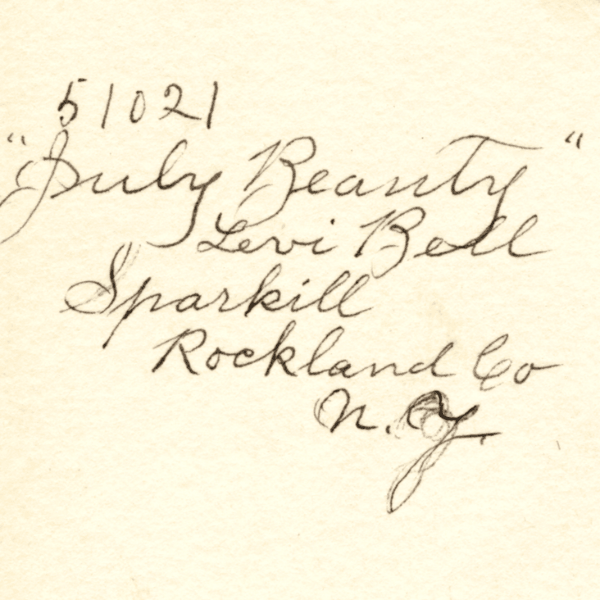 51021
"July Beauty"
Levi Bell
Sparkill
Rockland Co
N.Y.